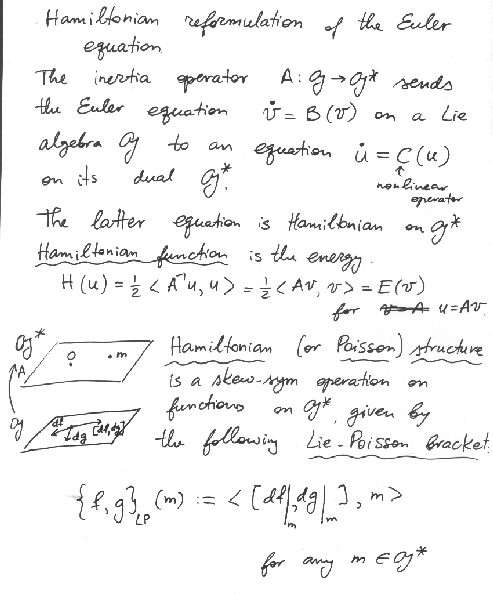 Hamiltonian reformulation of the Euler
equation
The inertia operator A: 𝔤 → 𝔤* sends
the Euler equation v̇ = B(v) on a Lie
algebra 𝔤 to an equation u̇ = C(u)
on its dual 𝔤*.
↑
nonlinear
operator
The latter equation is Hamiltonian on 𝔤*
Hamiltonian function is the energy
H(u) = ½ < A⁻¹u, u > = ½ < Av, v > = E(v)
for u = Av.
𝔤*
A
0 · m
𝔤
df
dg
[df,dg]
Hamiltonian (or Poisson) structure
is a skew-sym operation on
functions on 𝔤*, given by
the following Lie-Poisson Bracket
{f, g}_LP (m) := < [df|_m, dg|_m], m >
for any m ∈ 𝔤*